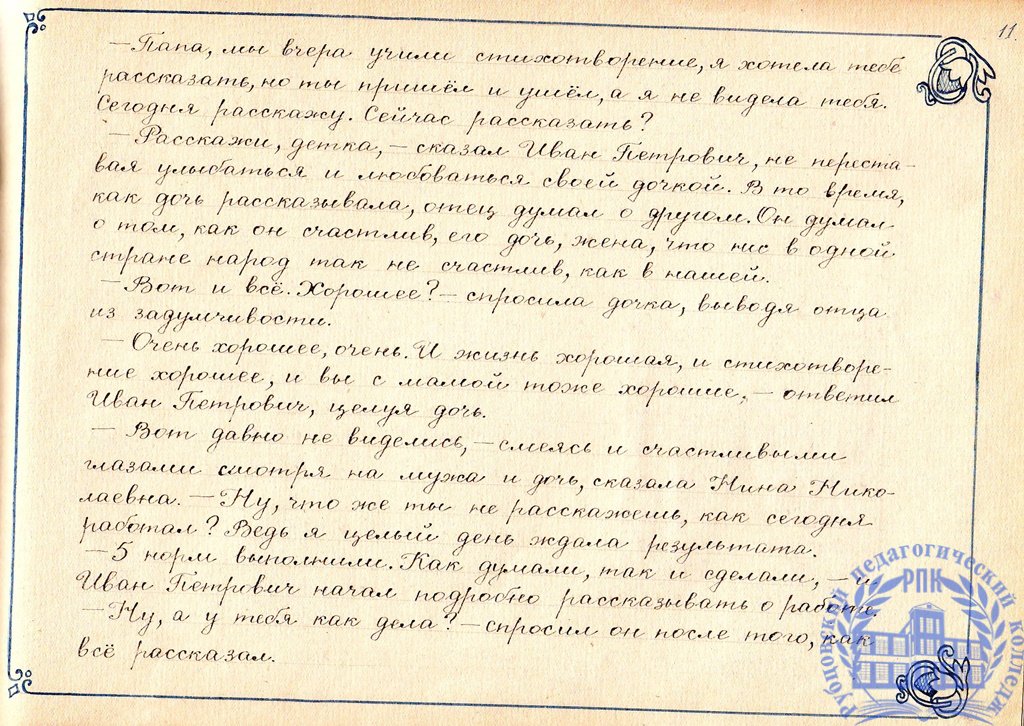 11.
— Папа, мы вчера учили стихотворение, я хотела тебе
рассказать, но ты пришёл и ушёл, а я не видела тебя.
Сегодня расскажу. Сейчас рассказать?
— Расскажи, детка, — сказал Иван Петрович, не переста-
вая улыбаться и любоваться своей дочкой. В то время,
как дочь рассказывала, отец думал о другом. Он думал
о том, как он счастлив, его дочь, жена, что ни в одной
стране народ так не счастлив, как в нашей.
— Вот и всё. Хорошее? — спросила дочка, выводя отца
из задумчивости.
— Очень хорошее, очень. И жизнь хорошая, и стихотворе-
ние хорошее, и вы с мамой тоже хорошие, — ответил
Иван Петрович, целуя дочь.
— Вот давно не виделись, — смеясь и счастливыми
глазами смотря на мужа и дочь, сказала Нина Нико-
лаевна. — Ну, что же ты не расскажешь, как сегодня
работал? Ведь я целый день ждала результата.
— 5 норм выполнили. Как думали, так и сделали, — и
Иван Петрович начал подробно рассказывать о работе.
— Ну, а у тебя как дела? — спросил он после того, как
всё рассказал.
Рубцовский педагогический колледж
РПК